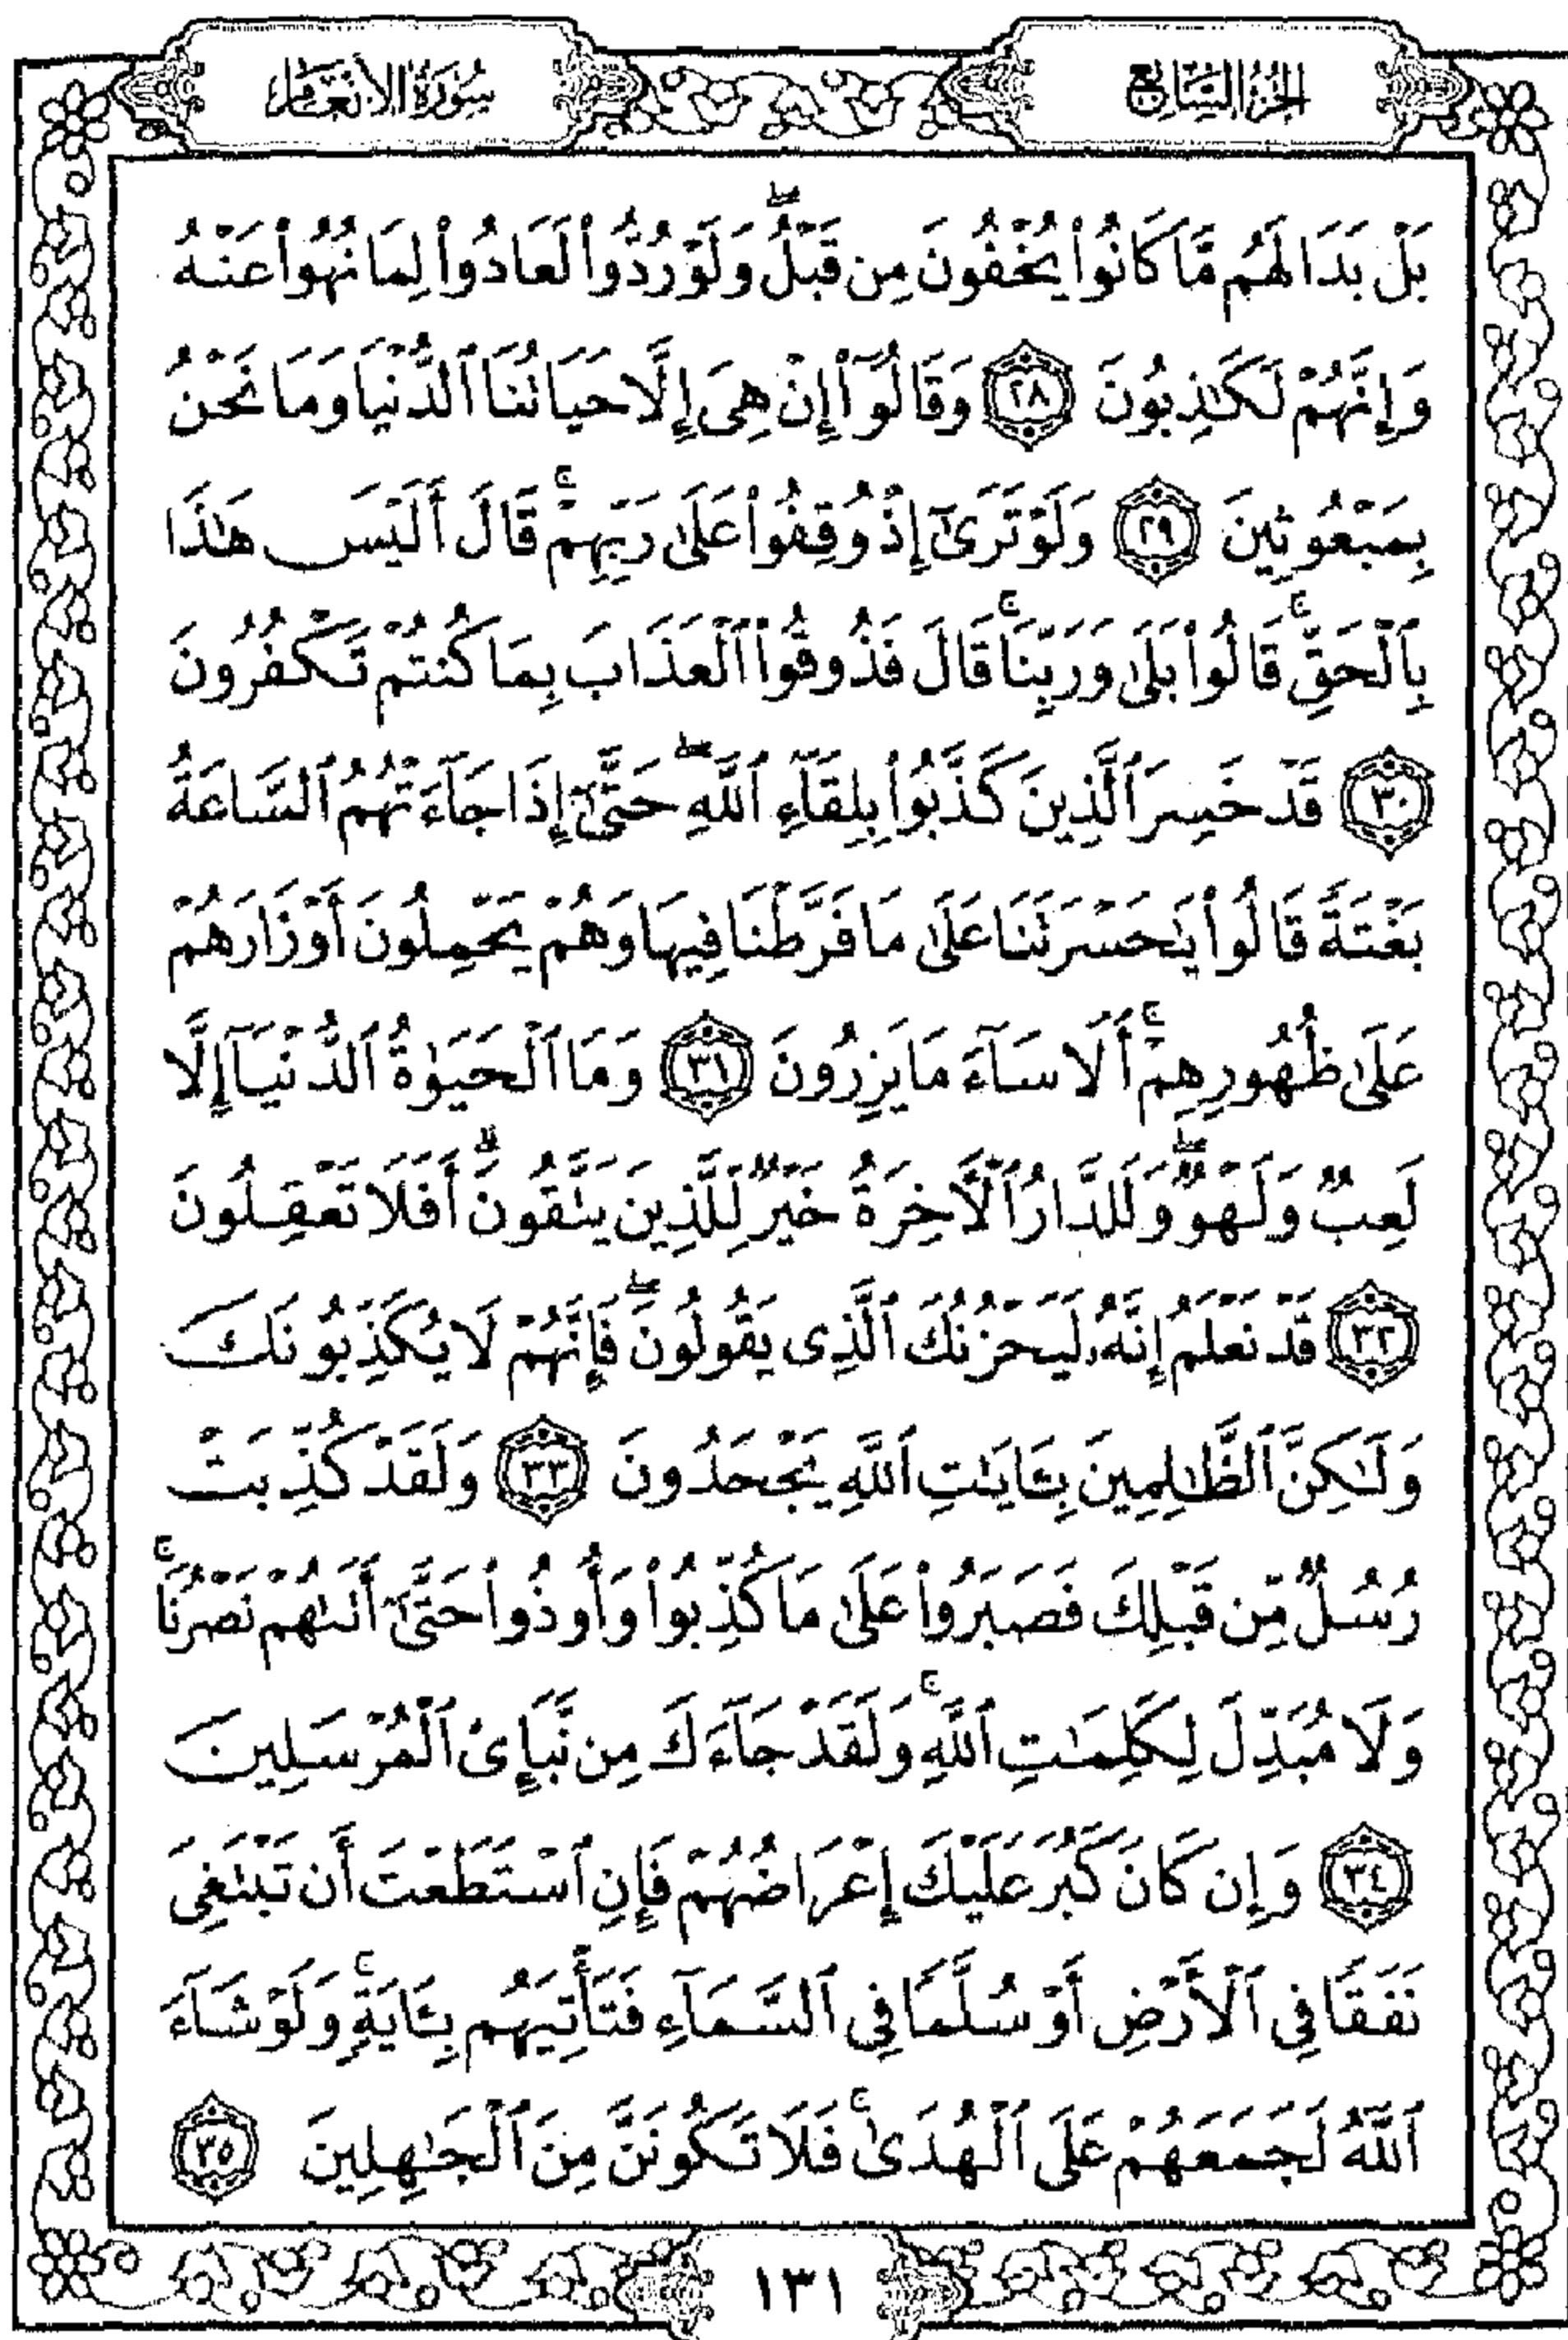 الجزء السابع
سورة الأنعام
بَلْ بَدَا لَهُم مَّا كَانُوا۟ يُخْفُونَ مِن قَبْلُ ۖ وَلَوْ رُدُّوا۟ لَعَادُوا۟ لِمَا نُهُوا۟ عَنْهُ
وَإِنَّهُمْ لَكَـٰذِبُونَ ٢٨ وَقَالُوٓا۟ إِنْ هِىَ إِلَّا حَيَاتُنَا ٱلدُّنْيَا وَمَا نَحْنُ
بِمَبْعُوثِينَ ٢٩ وَلَوْ تَرَىٰٓ إِذْ وُقِفُوا۟ عَلَىٰ رَبِّهِمْ ۚ قَالَ أَلَيْسَ هَـٰذَا
بِٱلْحَقِّ ۚ قَالُوا۟ بَلَىٰ وَرَبِّنَا ۚ قَالَ فَذُوقُوا۟ ٱلْعَذَابَ بِمَا كُنتُمْ تَكْفُرُونَ
٣٠ قَدْ خَسِرَ ٱلَّذِينَ كَذَّبُوا۟ بِلِقَآءِ ٱللَّهِ ۖ حَتَّىٰٓ إِذَا جَآءَتْهُمُ ٱلسَّاعَةُ
بَغْتَةً قَالُوا۟ يَـٰحَسْرَتَنَا عَلَىٰ مَا فَرَّطْنَا فِيهَا وَهُمْ يَحْمِلُونَ أَوْزَارَهُمْ
عَلَىٰ ظُهُورِهِمْ ۚ أَلَا سَآءَ مَا يَزِرُونَ ٣١ وَمَا ٱلْحَيَوٰةُ ٱلدُّنْيَآ إِلَّا
لَعِبٌ وَلَهْوٌ ۖ وَلَلدَّارُ ٱلْأَخِرَةُ خَيْرٌ لِّلَّذِينَ يَتَّقُونَ ۗ أَفَلَا تَعْقِلُونَ
٣٢ قَدْ نَعْلَمُ إِنَّهُۥ لَيَحْزُنُكَ ٱلَّذِى يَقُولُونَ ۖ فَإِنَّهُمْ لَا يُكَذِّبُونَكَ
وَلَـٰكِنَّ ٱلظَّـٰلِمِينَ بِـَٔايَـٰتِ ٱللَّهِ يَجْحَدُونَ ٣٣ وَلَقَدْ كُذِّبَتْ
رُسُلٌ مِّن قَبْلِكَ فَصَبَرُوا۟ عَلَىٰ مَا كُذِّبُوا۟ وَأُوذُوا۟ حَتَّىٰٓ أَتَىٰهُمْ نَصْرُنَا ۚ
وَلَا مُبَدِّلَ لِكَلِمَـٰتِ ٱللَّهِ ۚ وَلَقَدْ جَآءَكَ مِن نَّبَإِى۟ ٱلْمُرْسَلِينَ
٣٤ وَإِن كَانَ كَبُرَ عَلَيْكَ إِعْرَاضُهُمْ فَإِنِ ٱسْتَطَعْتَ أَن تَبْتَغِىَ
نَفَقًا فِى ٱلْأَرْضِ أَوْ سُلَّمًا فِى ٱلسَّمَآءِ فَتَأْتِيَهُم بِـَٔايَةٍ ۚ وَلَوْ شَآءَ
ٱللَّهُ لَجَمَعَهُمْ عَلَى ٱلْهُدَىٰ ۚ فَلَا تَكُونَنَّ مِنَ ٱلْجَـٰهِلِينَ ٣٥
١٣١